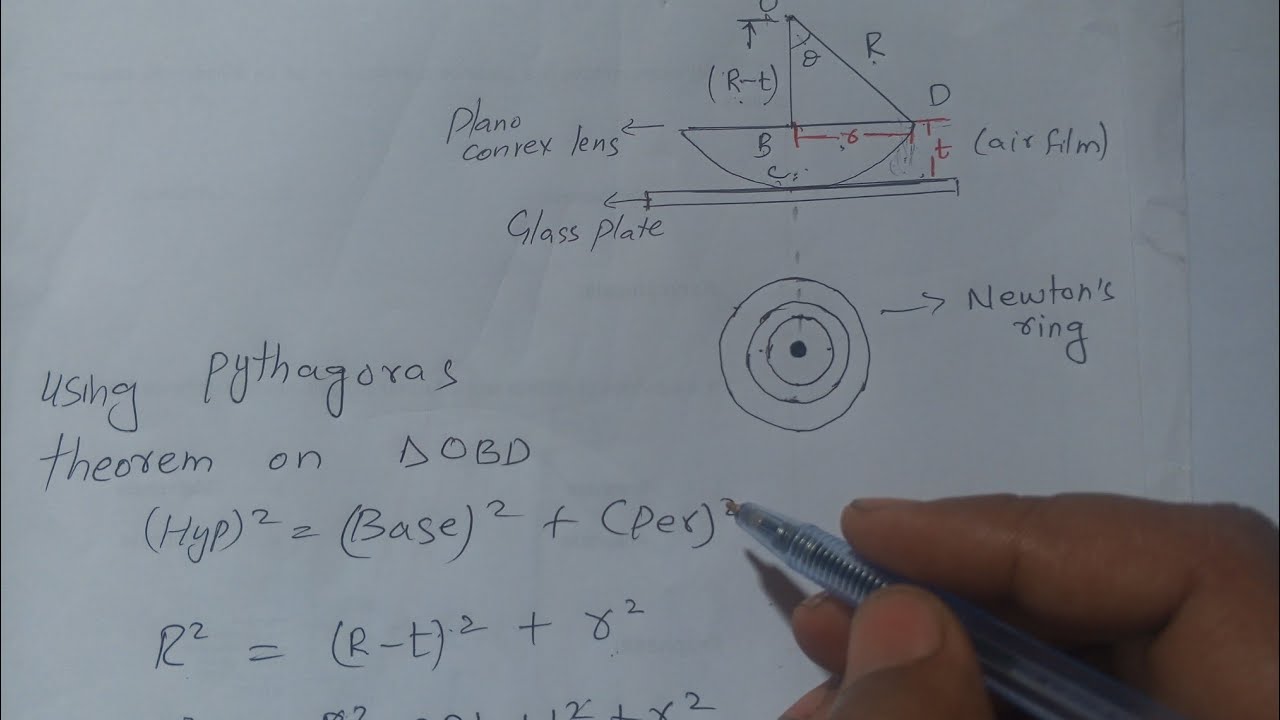 O
θ
R
(R-t)
D
Plano
convex lens
B
r
t
(air film)
C
Glass plate
Newton's
ring
Using Pythagoras
theorem on ΔOBD
(Hyp)² = (Base)² + (Per)²
R² = (R-t)² + r²